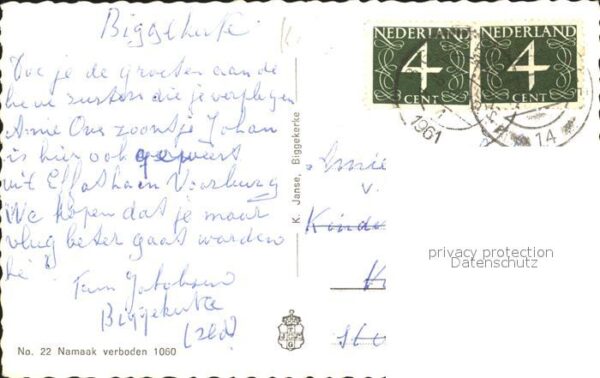 Biggekerke
Doe je de groeten aan de
lieve zusters die je verplegen
Annie Ons zoontje Johan
is hier ook geweest
uit Effatha in Voorburg
We hopen dat je maar
vlug beter gaat worden
Fam
Biggekerke
(Zld)
No. 22 Namaak verboden 1060
K. Janse, Biggekerke
NEDERLAND
4
CENT
NEDERLAND
4
CENT
1961
14
v.
Kinde
privacy protection
Datenschutz